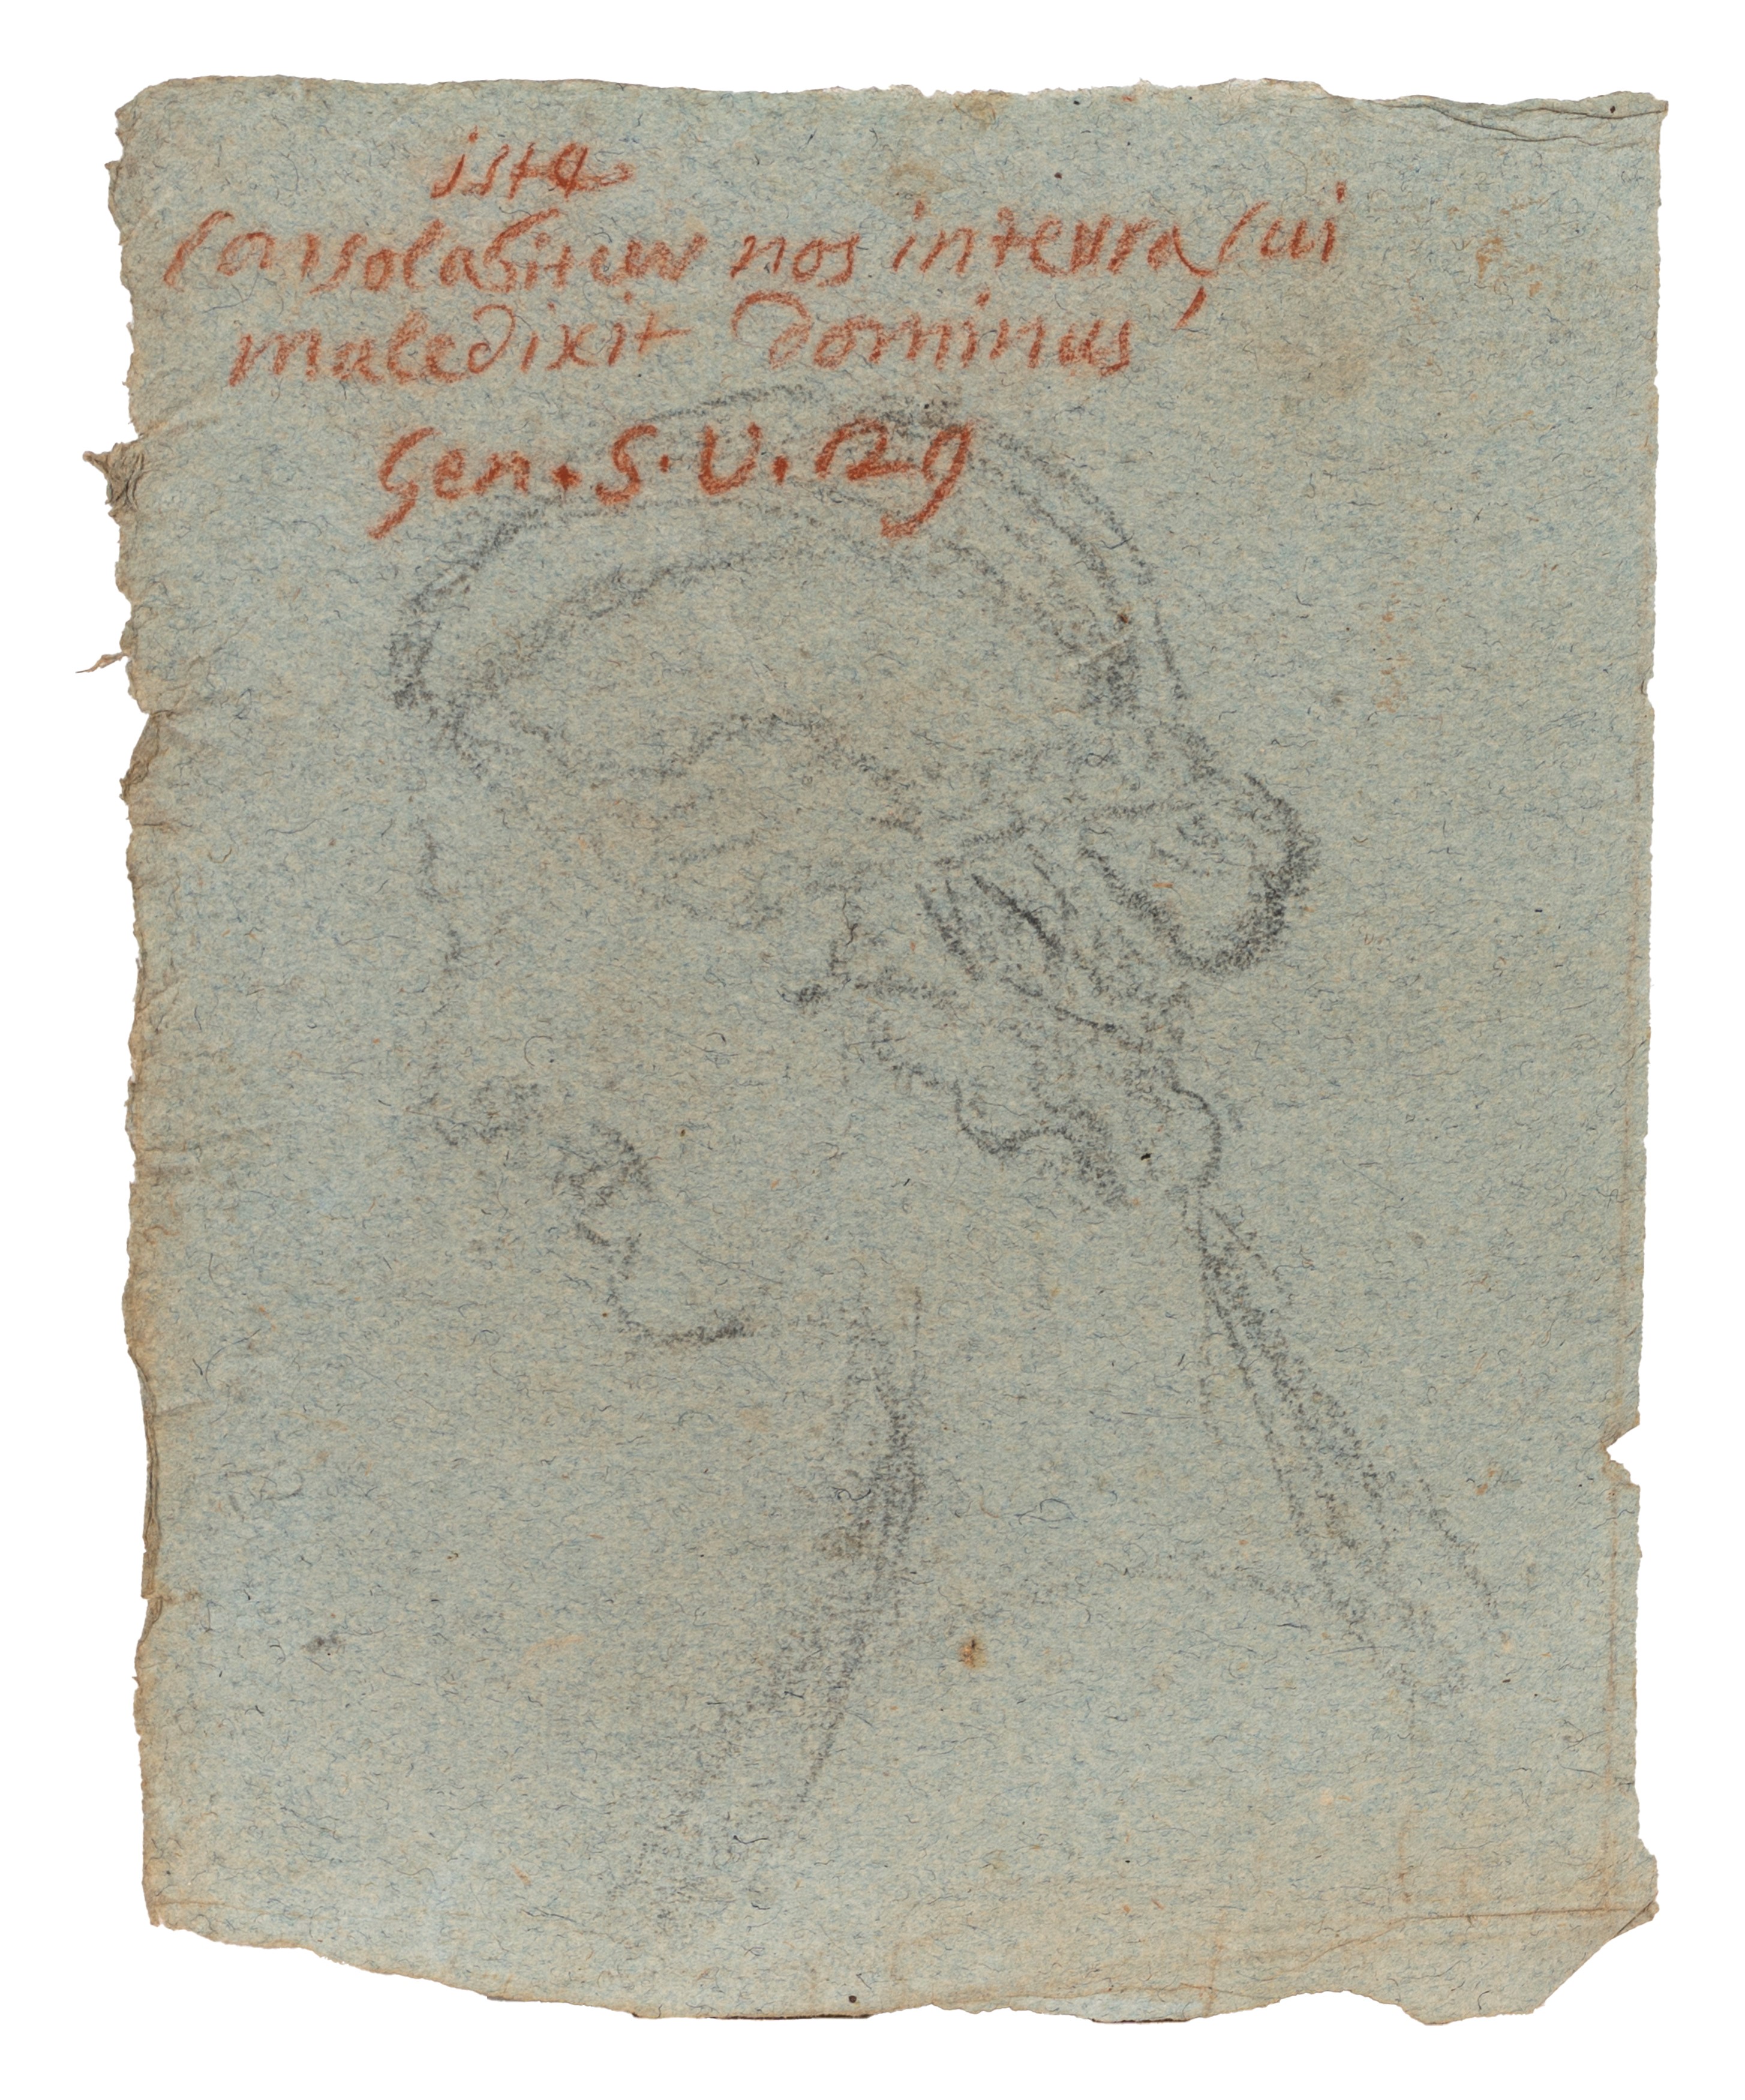 iste
Consolabitur nos in terra cui
maledixit dominus
Gen. 5. V. 29